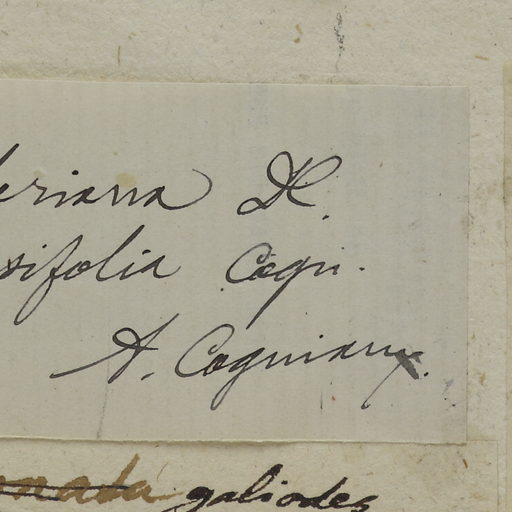 eriana DC.
sifolia Cogn.
A. Cogniaux.
nata galiodes